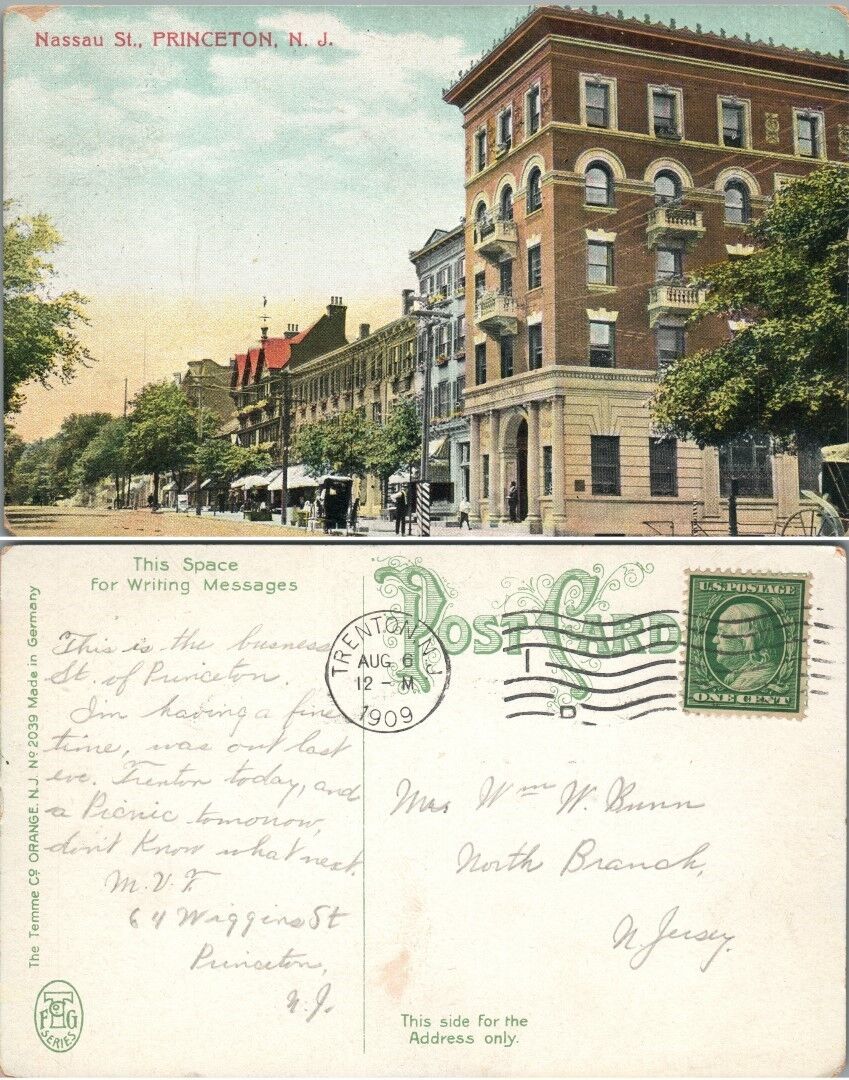 Nassau St., PRINCETON, N. J.
This Space
for Writing Messages
POST CARD
U.S. POSTAGE
ONE CENT
TRENTON, N.J.
AUG 6
12 - M
1909
1
D
This is the business
St. of Princeton.
I'm having a fine
time, was out last
eve. Trenton today, and
a Picnic tomorrow,
don't know what next.
M. V. T.
64 Wiggins St
Princeton,
N. J.
Mrs. Wm W. Bunn
North Branch,
N Jersey.
The Temme Co. ORANGE. N.J. No 2039 Made in Germany
T
F G
SERIES
This side for the
Address only.